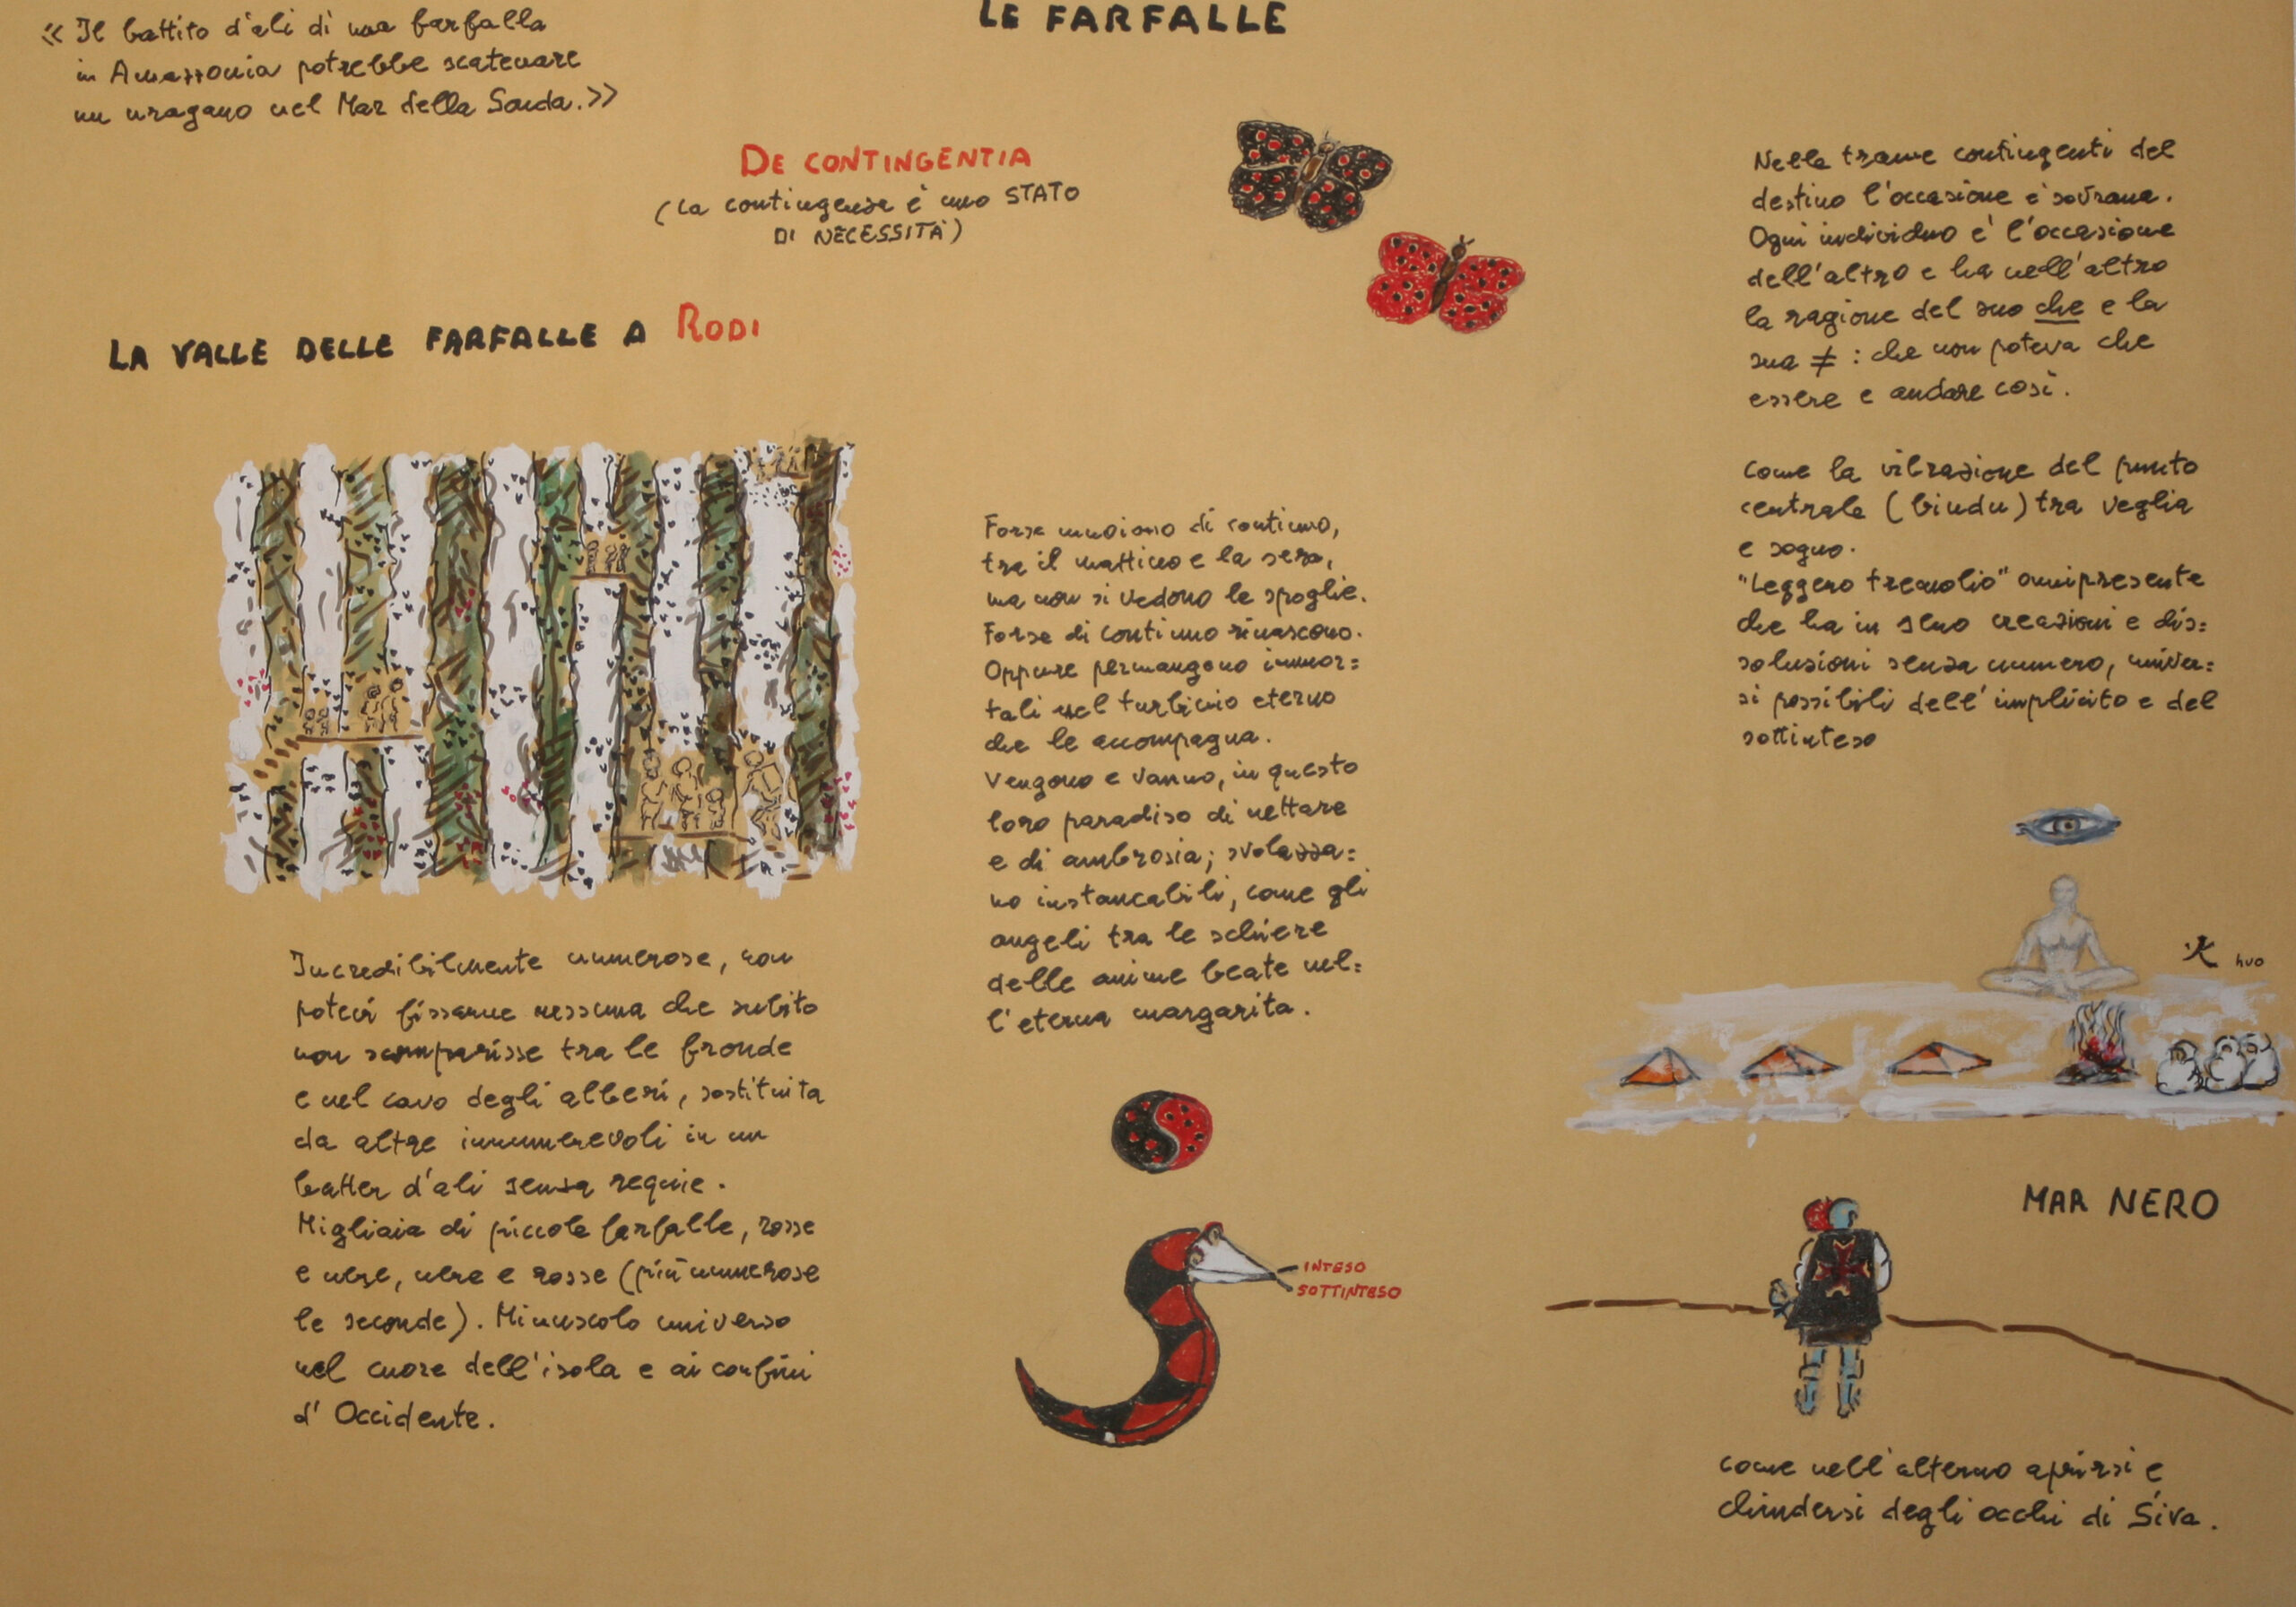 LE FARFALLE
«Il battito d'ali di una farfalla
in Amazzonia potrebbe scatenare
un uragano nel Mar della Sonda.»
DE CONTINGENTIA
(la contingenza è uno STATO
DI NECESSITÀ)
LA VALLE DELLE FARFALLE A RODI
Incredibilmente numerose, non
potevi fissarne nessuna che subito
non scomparisse tra le fronde
e nel cavo degli alberi, sostituita
da altre innumerevoli in un
batter d'ali senza requie.
Migliaia di piccole farfalle, rosse
e nere, nere e rosse (più numerose
le seconde). Minuscolo universo
nel cuore dell'isola e ai confini
d'Occidente.
Forse muoiono di continuo,
tra il mattino e la sera,
ma non si vedono le spoglie.
Forse di continuo rinascono.
Oppure permangono immor=
tali nel turbinio eterno
che le accompagna.
Vengono e vanno, in questo
loro paradiso di nettare
e di ambrosia; svolazza=
no instancabili, come gli
angeli tra le schiere
delle anime beate nel=
l'eterna margarita.
INTESO
SOTTINTESO
Nelle trame contingenti del
destino l'occasione è sovrana.
Ogni individuo è l'occasione
dell'altro e ha nell'altro
la ragione del suo che e la
sua ≠ : che non poteva che
essere e andare così.
come la vibrazione del punto
centrale (bindu) tra veglia
e sogno.
"Leggero tremolio" onnipresente
che ha in seno creazioni e dis=
soluzioni senza numero, univer=
si possibili dell'implicito e del
sottinteso
火 huo
MAR NERO
come nell'alterno aprirsi e
chiudersi degli occhi di Śiva.